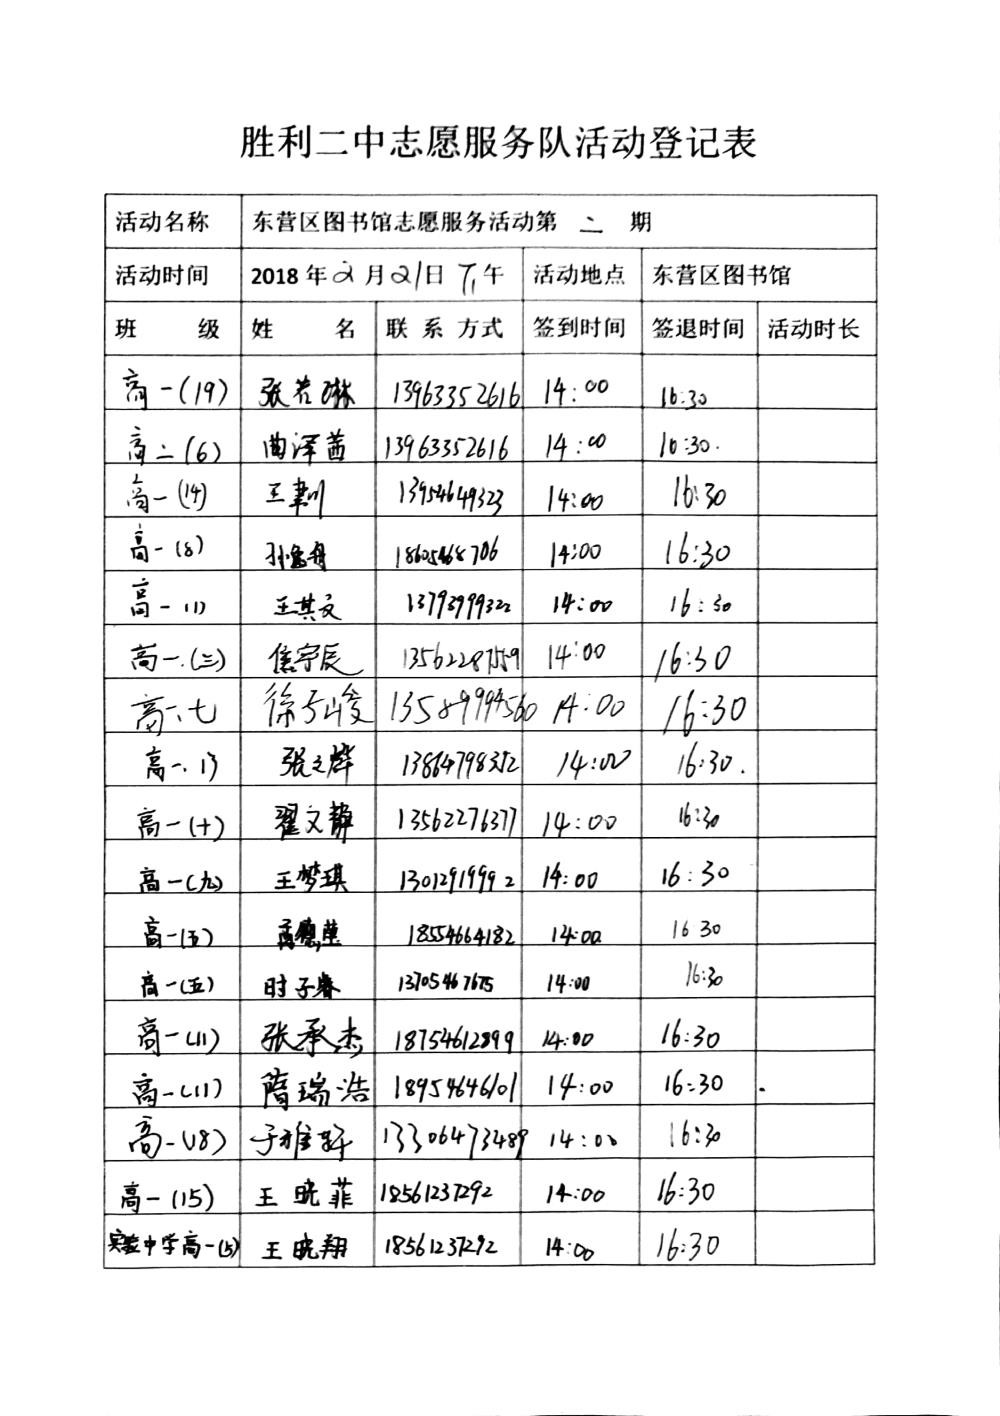 胜利二中志愿服务队活动登记表
活动名称 东营区图书馆志愿服务活动第 二 期
活动时间 2018年2月21日下午 活动地点 东营区图书馆
班 级 姓 名 联系方式 签到时间 签退时间 活动时长
高一(19) 张若琳 13963352616 14:00 16:30
高二(6) 曲泽茜 13963352616 14:00 16:30.
高一(14) 王聿川 13954649323 14:00 16:30
高一(8) 孙逸舟 18605468706 14:00 16:30
高一(1) 王其文 13793999322 14:00 16:30
高一.(三) 焦宇辰 13562287559 14:00 16:30
高一、七 徐子峻 13589994560 14:00 16:30
高一.13 张之烨 13864798352 14:00 16:30.
高一(十) 翟文静 13562276377 14:00 16:30
高一(九) 王梦琪 13012919992 14:00 16:30
高一(五) 18554664182 14:00 16 30
高一(五) 时子春 13705467675 14:00 16:30
高一(11) 张承杰 18754612899 14:00 16:30
高一(11) 隋瑞浩 18954646101 14:00 16:30
高一(18) 于雅轩 13306473489 14:00 16:30
高一(15) 王晓菲 18561237292 14:00 16:30
实验中学高一(5) 王晓翔 18561237292 14:00 16:30